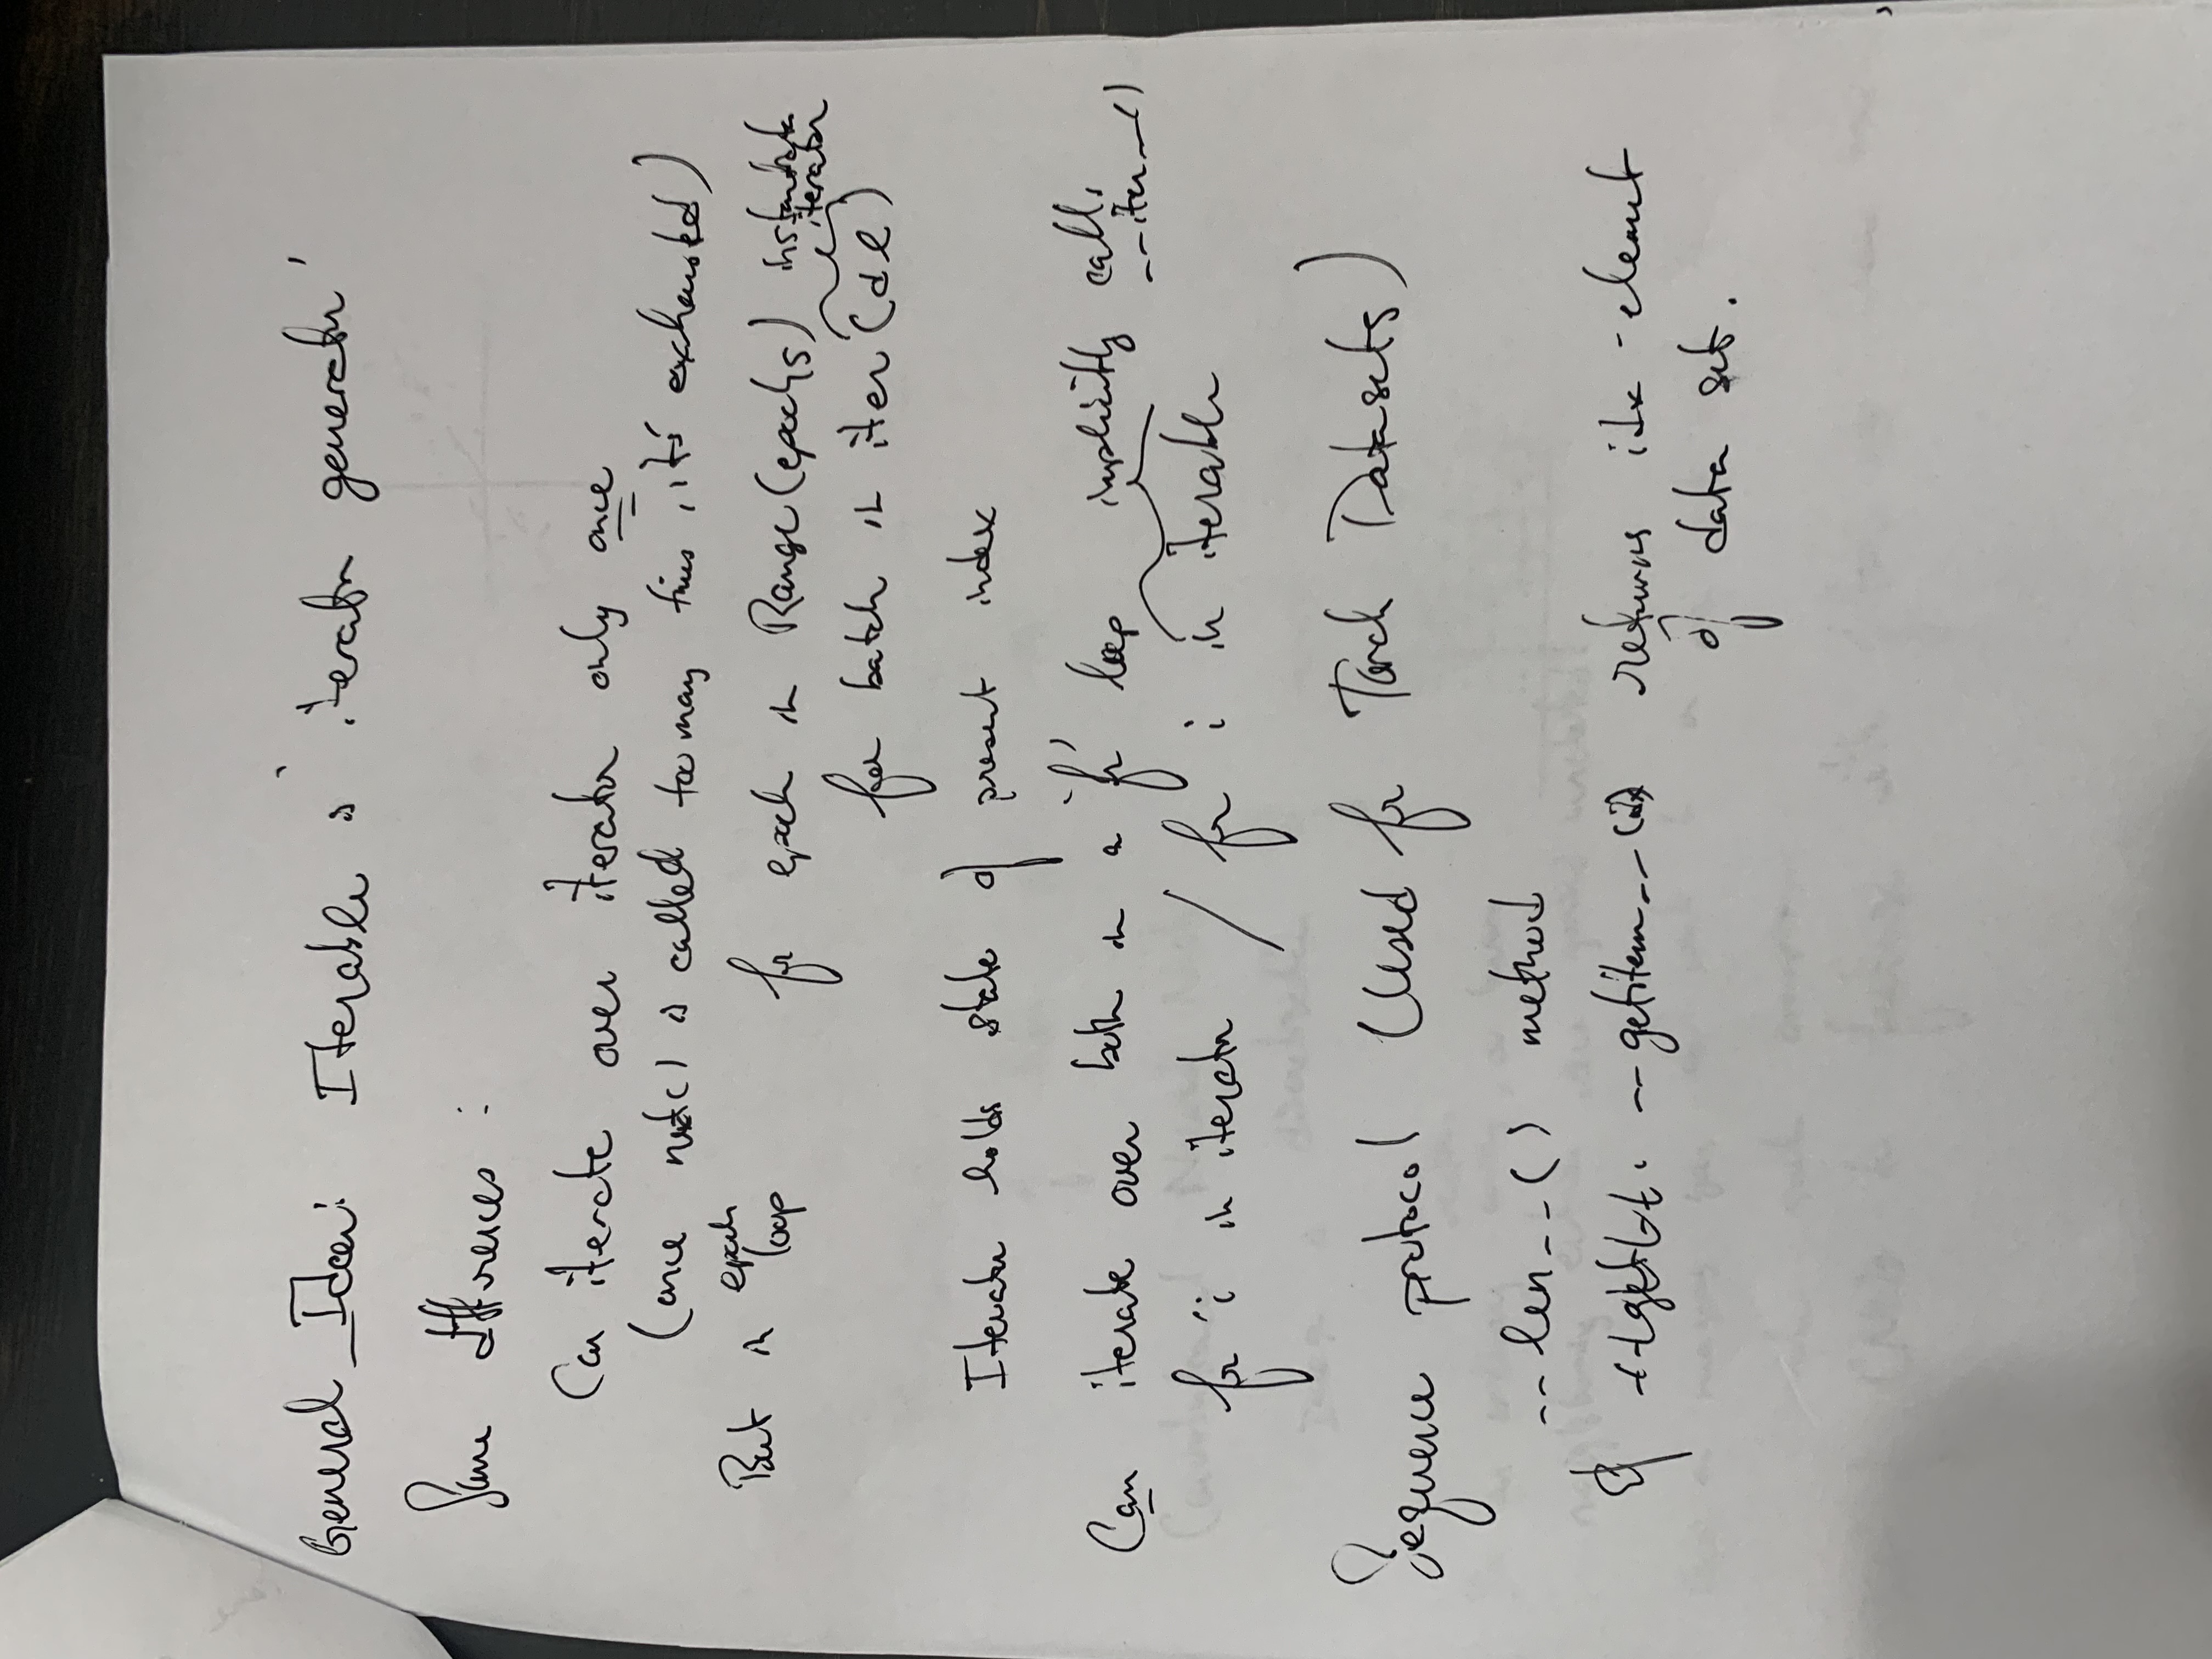 General Idea: Iterable is 'iterator generator'
Some differences :
Can iterate over iterator only once
(once next() is called too many times, it's exhausted)
But in epoch loop
for epoch in Range(epochs) instantiate iterator
for batch in iter(dl)
Iterator holds state of present index
Can iterate over both in a 'for' loop implicitly calls __iter__()
for i in iterator / for i in iterable
Sequence protocol (Used for Torch Datasets)
__len__() method
& __getitem__(idx) returns idx-element
of data set.